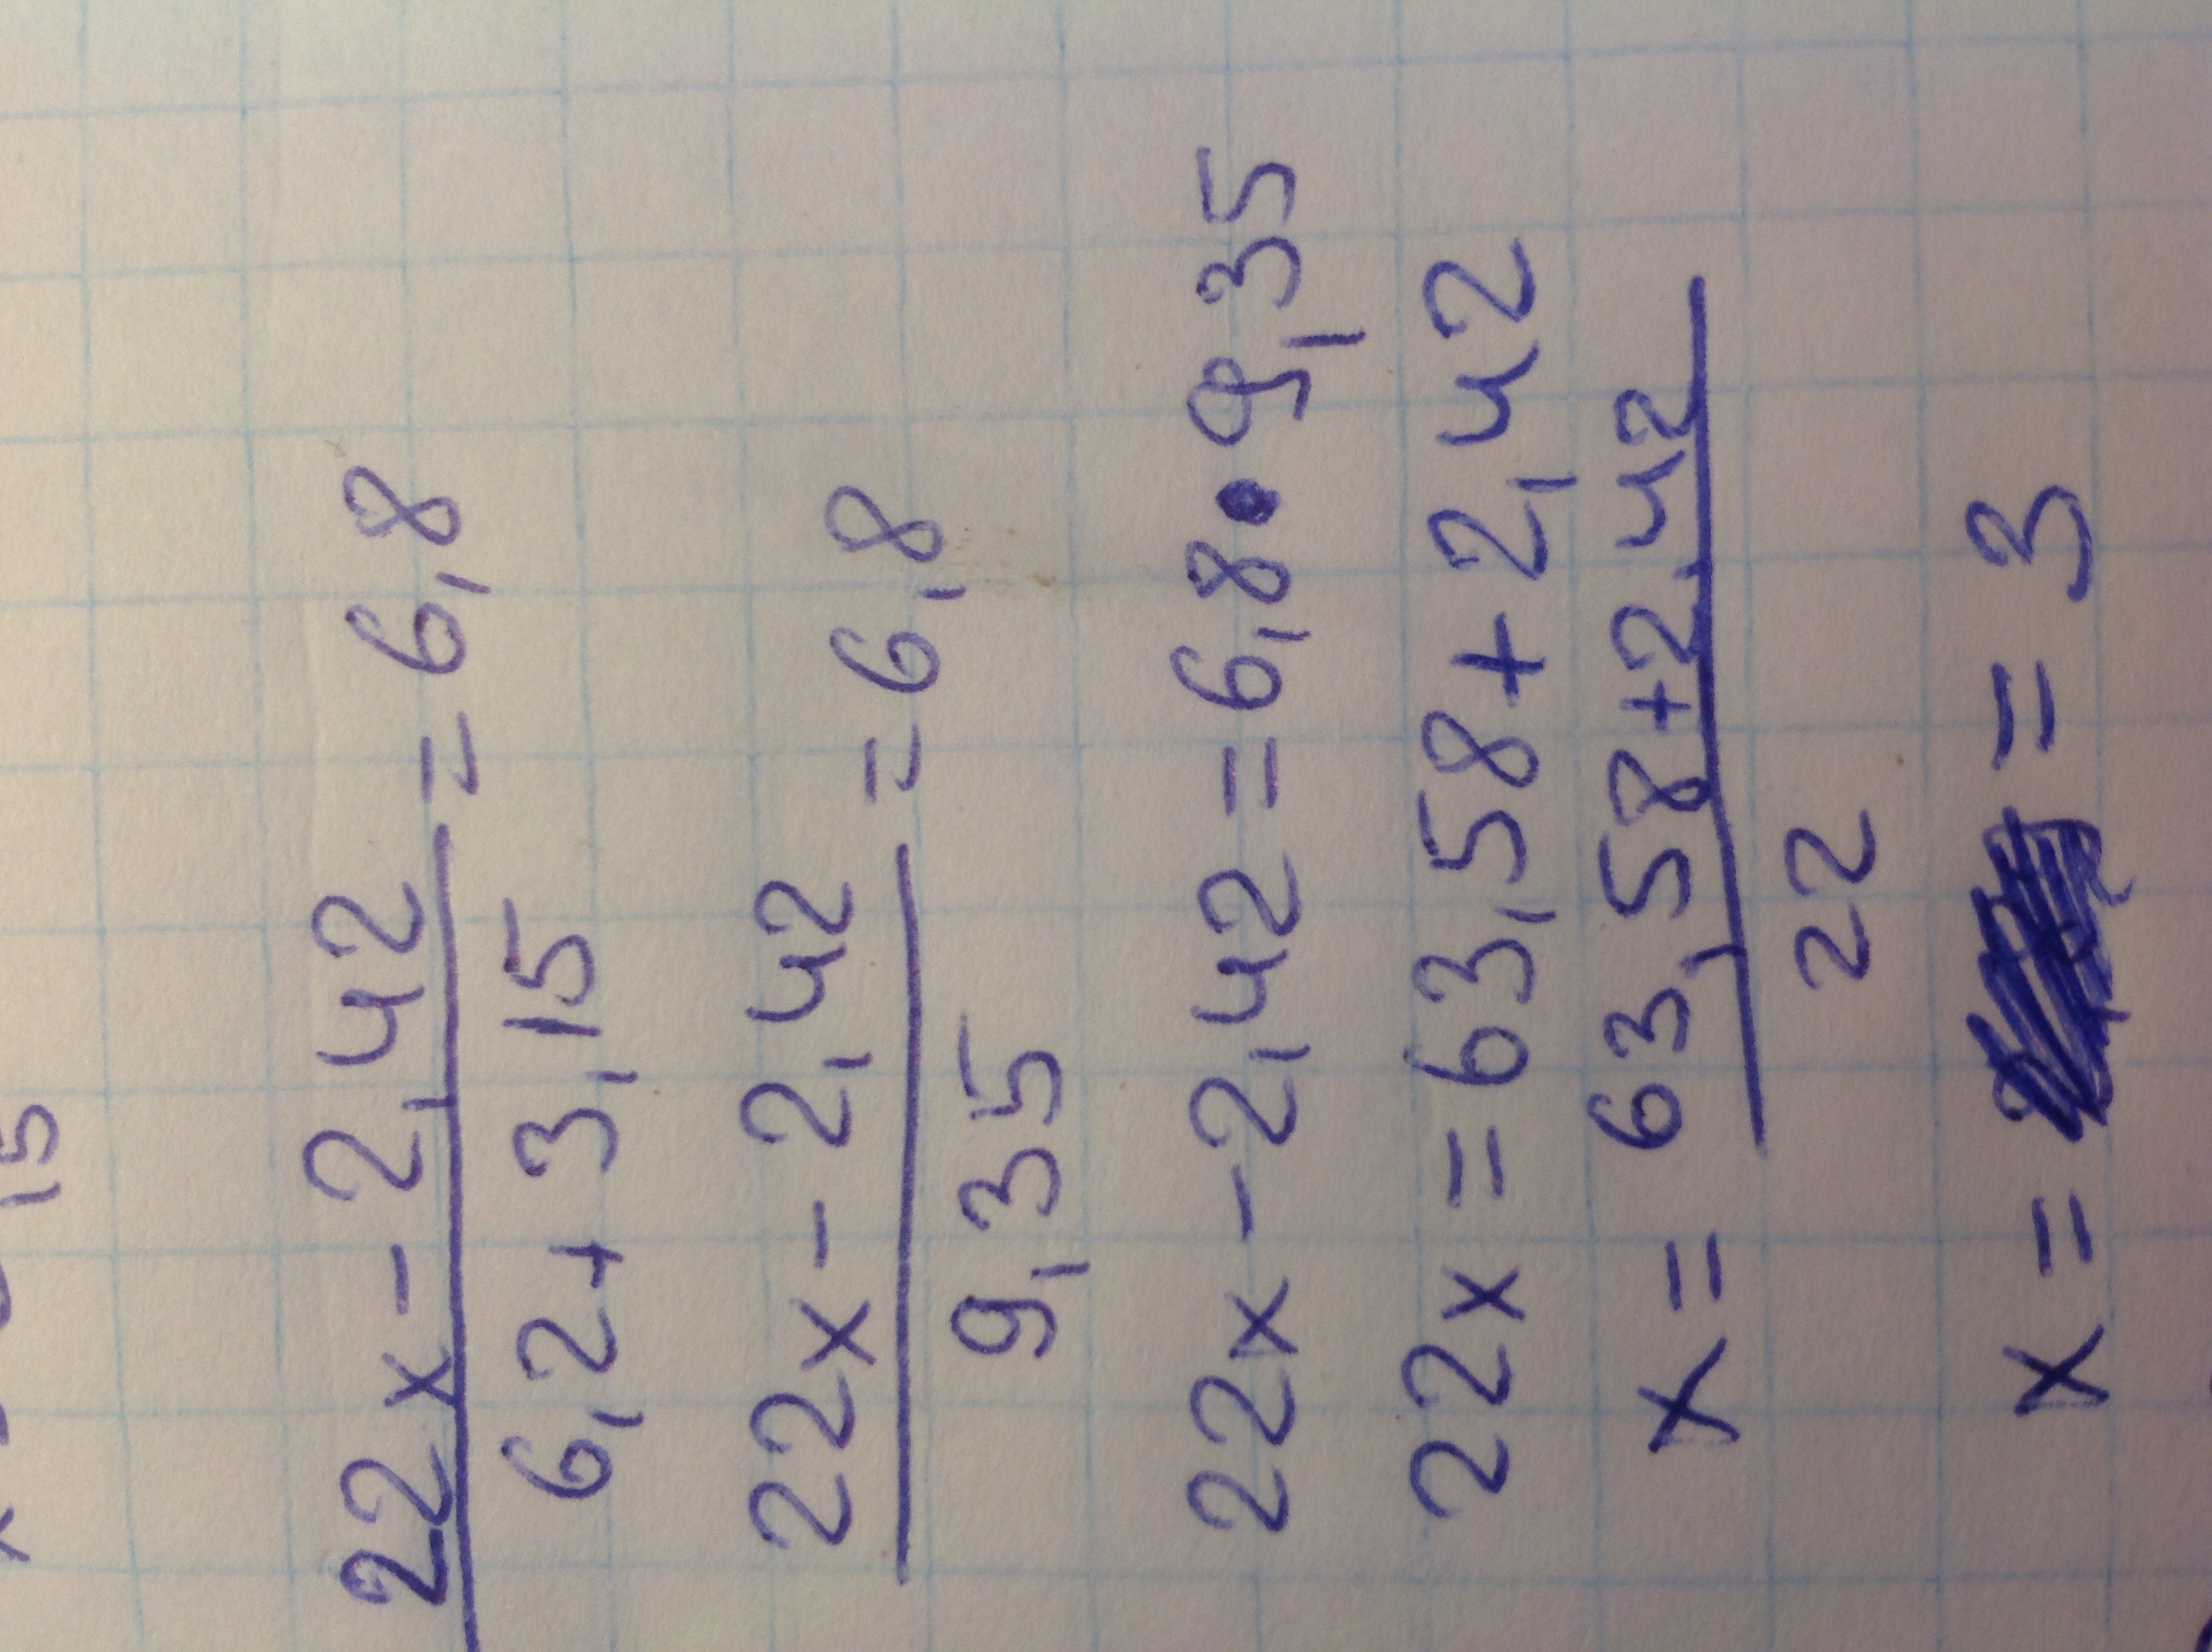 15
22x - 2,42 = 6,8
6,2 + 3,15
22x - 2,42 = 6,8
9,35
22x - 2,42 = 6,8 • 9,35
22x = 63,58 + 2,42
x = 63,58 + 2,42
22
x = = 3